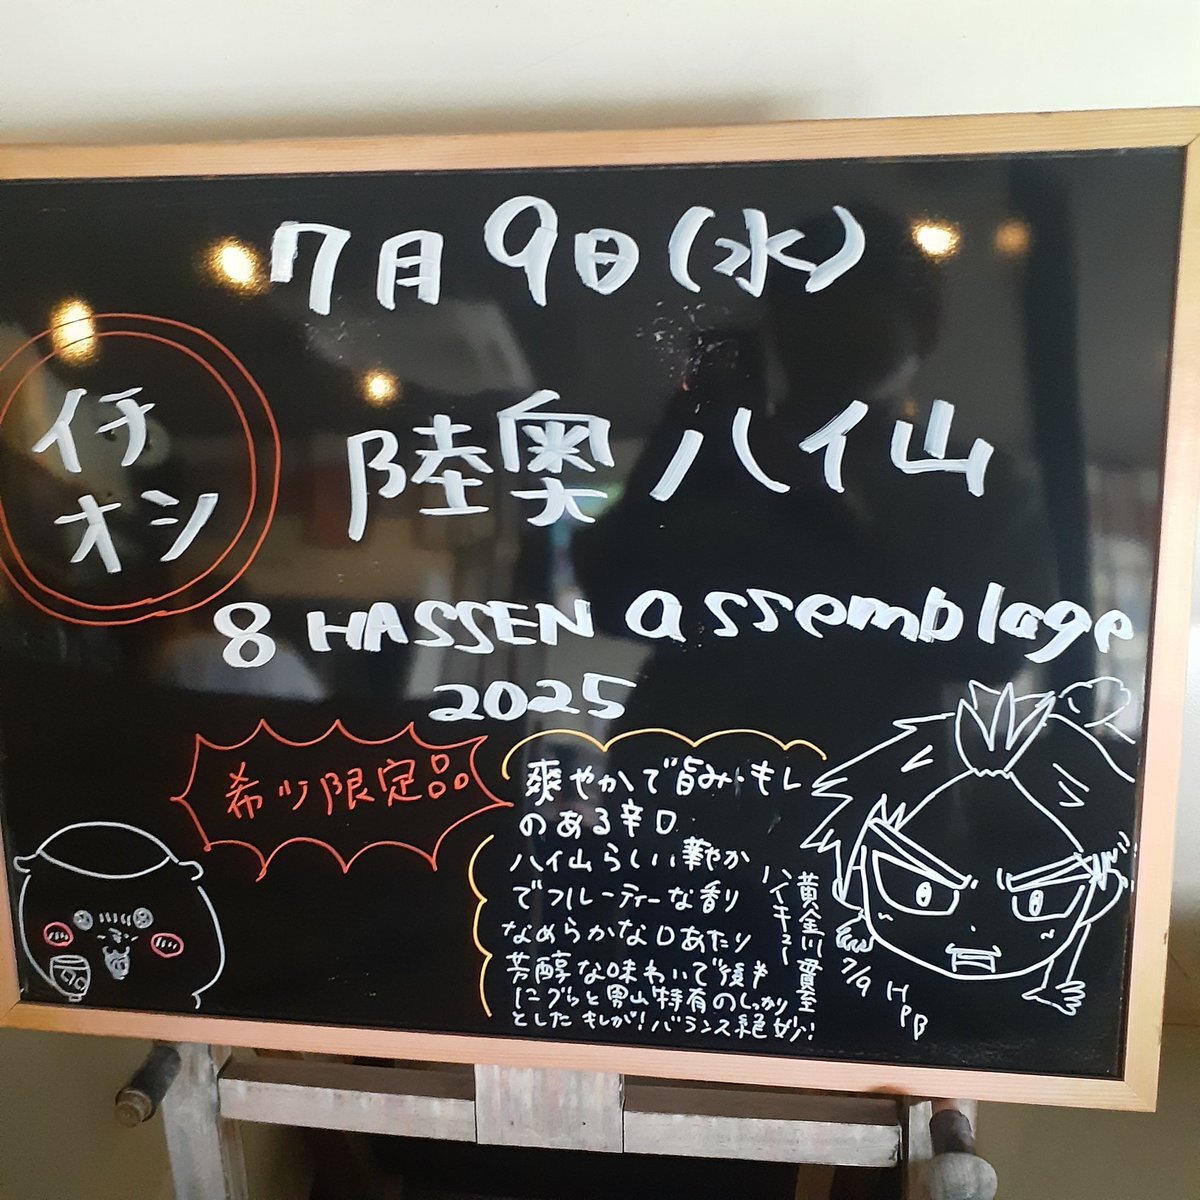 7月9日(水)
イチ
オシ
陸奥八仙
8 HASSEN assemblage
2025
希少限定品
爽やかで旨み・キレ
のある辛口
八仙らしい華やか
でフルーティーな香り
なめらかな口あたり
芳醇な味わいで後半
にグッと男山特有のしっかり
としたキレが!バランス絶妙!
ハイキュー
黄金川貫至
7/9 HPB